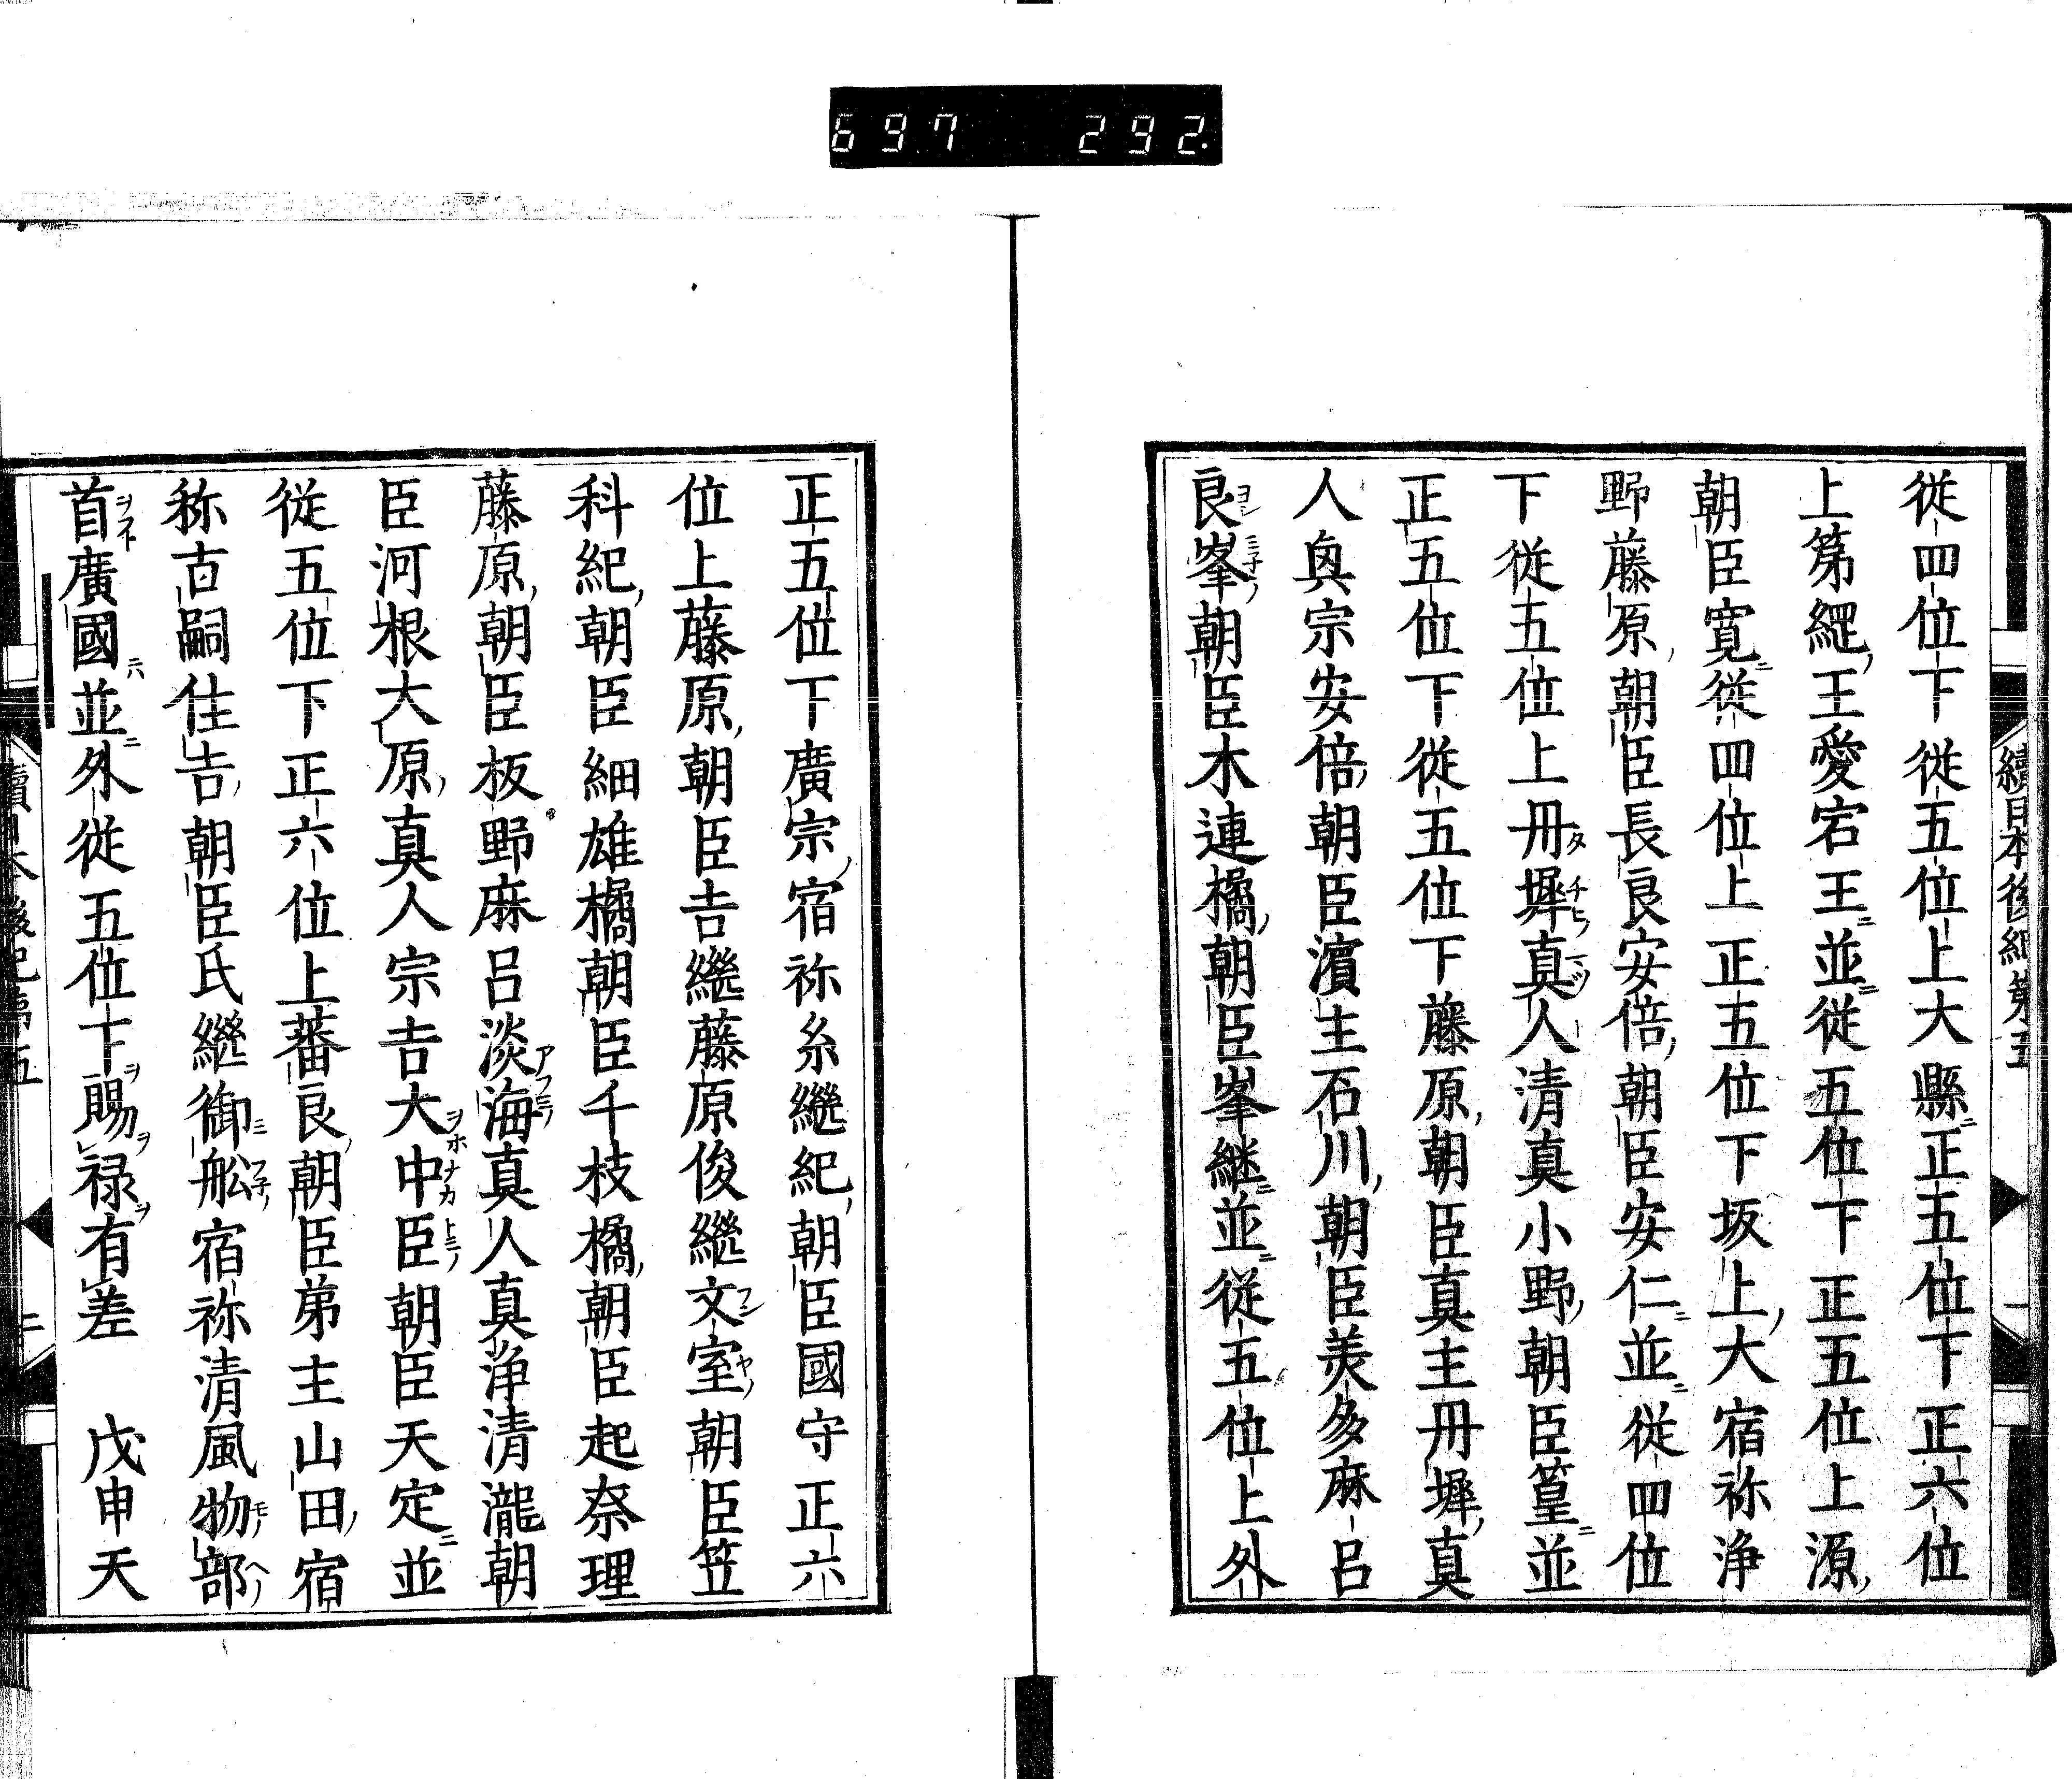 697 292.
續日本後紀第五 一
従四位下従五位上大縣正五位下正六位
上第繩王愛宕王並従五位下正五位上源
朝臣寛従四位上正五位下坂上大宿祢浄
野藤原朝臣長良安倍朝臣安仁並従四位
下従五位上丹墀真人清真小野朝臣篁並
正五位下従五位下藤原朝臣真主丹墀真
人興宗安倍朝臣濵主石川朝臣美多麻呂
良峯朝臣木連橘朝臣峯継並従五位上外
正五位下廣宗宿祢糸繼紀朝臣國守正六
位上藤原朝臣吉繼藤原俊繼文室朝臣笠
科紀朝臣細雄橘朝臣千枝橘朝臣起奈理
藤原朝臣板野麻呂淡海真人真浄清瀧朝
臣河根大原真人宗吉大中臣朝臣天定並
従五位下正六位上蕃良朝臣弟主山田宿
祢古嗣住吉朝臣氏繼御舩宿祢清風物部
首廣國並外従五位下賜禄有差 戊申天
續日本後紀第五 二